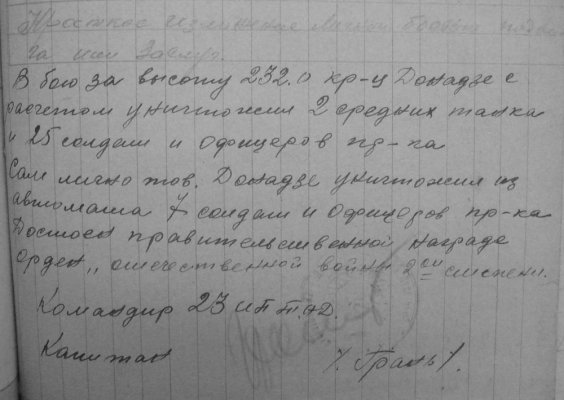 Краткое изложение личного боевого подви-
га или заслуг.
В бою за высоту 232.0 кр-ц Донадзе с
расчетом уничтожил 2 средних танка
и 25 солдат и офицеров пр-ка
Сам лично тов. Донадзе уничтожил из
автомата 7 солдат и офицеров пр-ка
Достоен правительственной награде
Орден „отечественной войны 2ой степени.
Командир 23 ИПТАД.
Капитан /Грань/.